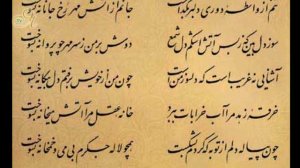 تنم از واسطهٔ دوری دلبر بگداخت جانم از آتش مهر رخ جانانه بسوخت
سوز دل بین که ز بس آتش اشکم دل شمع دوش بر من ز سر مهر چو پروانه بسوخت
آشنایی نه غریب است که دلسوز من است چون من از خویش برفتم دل بیگانه بسوخت
خرقه زهد مرا آب خرابات ببرد خانه عقل مرا آتش میخانه بسوخت
چون پیاله دلم از توبه که کردم بشکست همچو لاله جگرم بی می و خمخانه بسوخت